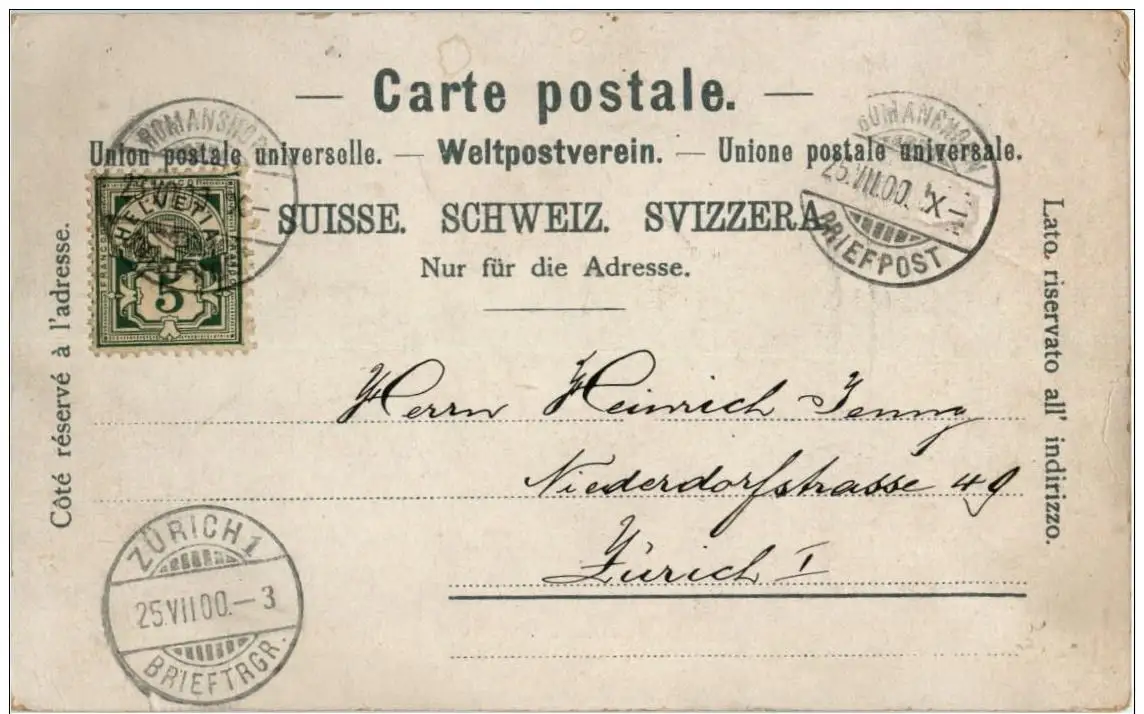 — Carte postale. —
Union postale universelle. — Weltpostverein. — Unione postale universale.
SUISSE. SCHWEIZ. SVIZZERA
Nur für die Adresse.
Côté réservé à l'adresse.
Lato, riservato all' indirizzo.
ROMANSHORN
HELVETIA
FRANCO
5
ROMANSHORN
25.VII.00. X—
BRIEFPOST
Herrn Heinrich Jenny
Niederdorfstrasse 49
Zürich I
ZÜRICH 1
25.VII.00.—3
BRIEFTRGR.